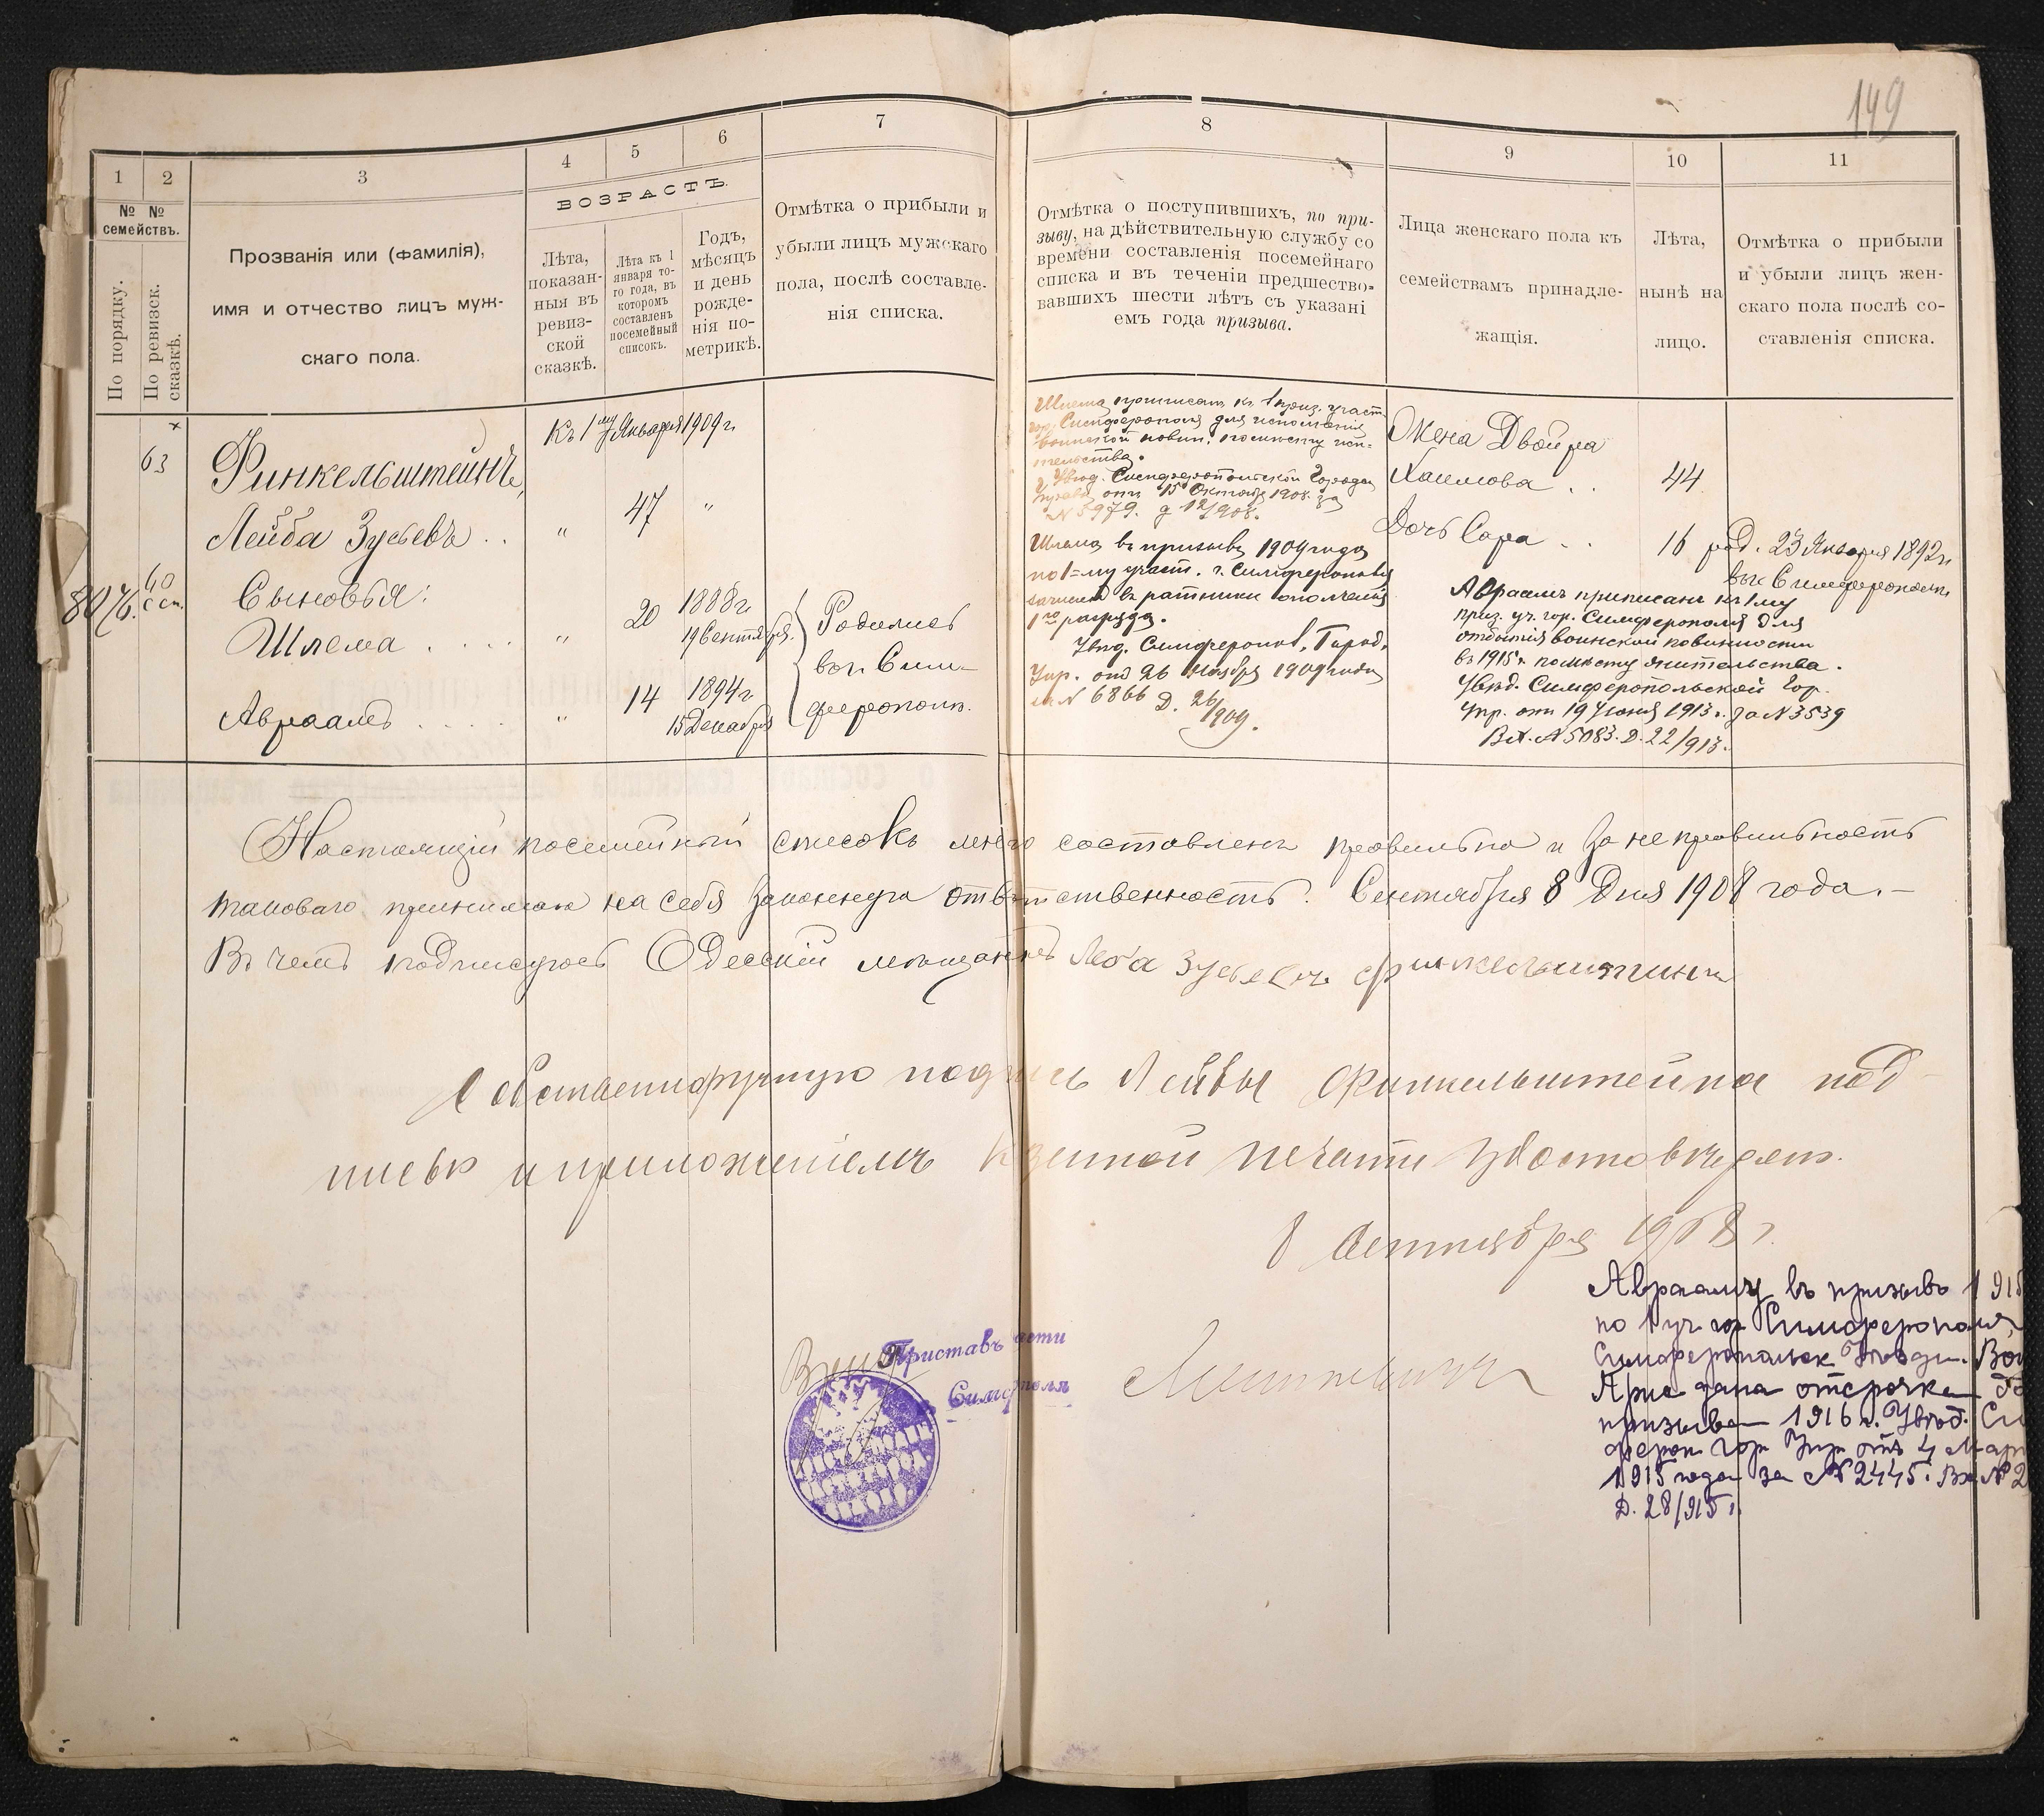 149
1
2
3
4
5
6
7
8
9
10
11
№ №
семействъ.
По порядку.
По ревизск.
сказкѣ.
Прозванія или (фамилія),
имя и отчество лицъ муж-
скаго пола.
ВОЗРАСТЪ.
Лѣта,
показан-
ныя въ
ревиз-
ской
сказкѣ.
Лѣта къ 1
января то-
го года, въ
которомъ
составленъ
посемейный
списокъ.
Годъ,
мѣсяцъ
и день
рожде-
нія по-
метрикѣ.
Отмѣтка о прибыли и
убыли лицъ мужскаго
пола, послѣ составле-
нія списка.
Отмѣтка о поступившихъ, по при-
зыву, на дѣйствительную службу со
времени составленія посемейнаго
списка и въ теченіи предшество-
вавшихъ шести лѣтъ съ указані
емъ года призыва.
Лица женскаго пола къ
семействамъ принадле-
жащія.
Лѣта,
нынѣ на
лицо.
Отмѣтка о прибыли
и убыли лицъ жен-
скаго пола послѣ со-
ставленія списка.
63
Къ 1му Января 1909 г.
Финкельштейнъ,
Лейба Зусьевъ . . " 47 "
80/76.
Сыновья:
Шлема . . . . " 20 1888 г.
19 Сентября.
Авраамъ . . . . " 14 1894 г.
15 Декабря
Родились
въ г. Сим-
ферополѣ.
Шлема приписанъ къ 1 приз. участ.
гор. Симферополя для исполненія
воинской повин. по мѣсту жи-
тельства.
Увѣд. Симферопольской Городск.
Управы отъ 15 Октября 1908 г. за
№ 5979. д 12/908.
Шлема въ призывъ 1909 года
по 1=му участ. г. Симферополя
зачисленъ въ ратники ополченія
1го разряда.
Увѣд. Симфероп. Город.
Упр. отъ 26 Ноября 1909 года
за № 6866 Д. 26/909.
Жена Двойра
Хаимова . . 44
Дочь Сара . . 16 род. 23 Января 1892 г.
въ г. Симферополѣ
Авраамъ приписанъ къ 1му
приз. уч. гор. Симферополя для
отбытія воинской повинности
въ 1915 г. по мѣсту жительства.
Увѣд. Симферопольской Гор.
Упр. отъ 19 Іюня 1913 г. за № 3539
Вх. № 5083. Д. 22/913.
Настоящій посемейный списокъ мною составленъ правильно и за неправильность
таковаго принимаю на себя законную отвѣтственность. Сентября 8 Дня 1908 года.-
Въ чемъ подписуюсь Одесскій мѣщанинъ Леба Зусьевъ Финкельштеинъ
Собственноручную подпись Лейбы Финкельштейна под-
писью и приложеніемъ казенной печати удостовѣряю.
8 Сентября 1908 г.
Приставъ части
Симферополя
Аврааму въ призывъ 1915
по 1 уч гор Симферополя
Симферопольск Уѣздн. Во
Прис дана отсрочка до
призыва 1916 г. Увѣд. Си
фероп Гор Упр отъ 4 Мар
1915 года за № 2445. Вх № 2
Д. 28/915 г.